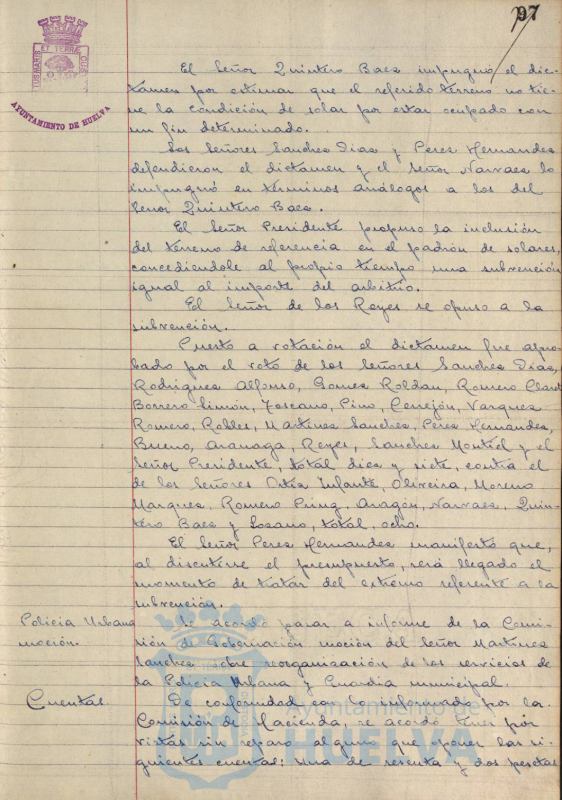 97
PORTUS MARIS ET TERRÆ CUSTODIA
AYUNTAMIENTO DE HUELVA
El Señor Quintero Baez impugnó el dic-
tamen por estimar que el referido terreno no tie-
ne la condición de solar por estar ocupado con
un fin determinado.
Los Señores Sanchez Diaz y Perez Hernandez
defendieron el dictamen y el Señor Narvaez lo
impugnó en términos análogos a los del
Señor Quintero Baez.
El Señor Presidente propuso la inclusión
del terreno de referencia en el padrón de solares,
concediendole al propio tiempo una subvención
igual al importe del arbitrio.
El Señor de los Reyes se opuso a la
subvención.
Puesto a votación el dictamen fue apro-
bado por el voto de los Señores Sanchez Diaz,
Rodriguez Alfonso, Gomez Roldan, Romero Claret
Borrero Limón, Toscano, Pino, Cerrejón, Vazquez
Romero, Robles, Martinez Sanchez, Perez Hernandez,
Bueno, Aranaga, Reyes, Sanchez Montiel y el
Señor Presidente, total diez y siete, contra el
de los Señores Ortiz Infante, Oliveira, Moreno
Marquez, Romero Aragón, Narvaez, Quin-
tero Baez y Lozano, total, ocho.
El Señor Perez Hernandez manifestó que,
al discutirse el presupuesto, será llegado el
momento de tratar del extremo referente a la
subvención.
Policia Urbana
moción.
Se acordó pasar a informe de la Comi-
sión de Gobernación moción del Señor Martinez
Sanchez sobre reorganización de los servicios de
la Policia Urbana y Guardia municipal.
Cuentas.
De conformidad con lo informado por la
Comisión de Hacienda, se acordó tener por
vistas sin reparo alguno que oponer las si-
guientes cuentas: Una de sesenta y dos pesetas
Ayuntamiento de
HUELVA